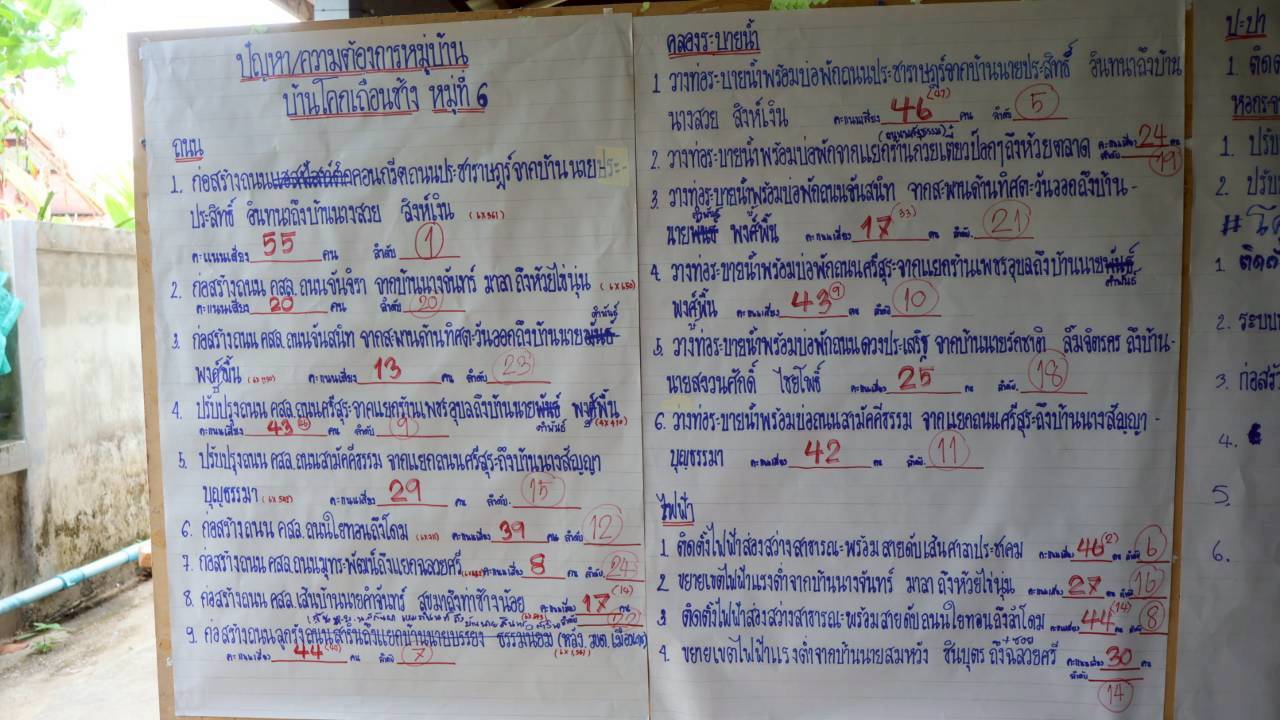 ปัญหา/ความต้องการหมู่บ้าน
บ้านโคกเถื่อนช้าง หมู่ที่ 6
ถนน
1. ก่อสร้างถนนคอนกรีตถนนประชาราษฎร์จากบ้านนาย
ประสิทธิ์ อินทนาถึงบ้านนางสวย สิงห์เงิน (6x361)
คะแนนเสียง 55 คน ลำดับ 1
2. ก่อสร้างถนน คสล. ถนนจันจิรา จากบ้านนางจันทร์ มาลา ถึงห้วยไข่นุ่น (6x650)
คะแนนเสียง 20 คน ลำดับ 20
3. ก่อสร้างถนน คสล. ถนนจันสนิท จากสะพานด้านทิศตะวันออกถึงบ้านนาย คำพันธ์
พงศ์พื้น คะแนนเสียง 13 คน ลำดับ 23
4. ปรับปรุงถนน คสล. ถนนศรีสุระจากแยกร้านเพชรอุบลถึงบ้านนาย คำพันธ์ พงศ์พื้น (4x410)
คะแนนเสียง 43 คน ลำดับ 9
5. ปรับปรุงถนน คสล. ถนนสามัคคีธรรม จากแยกถนนศรีสุระถึงบ้านนางสัญญา
บุญธรรมา คะแนนเสียง 29 คน ลำดับ 15
6. ก่อสร้างถนน คสล. ถนนใยทอนถึงโดม คะแนนเสียง 39 คน ลำดับ 12
7. ก่อสร้างถนน คสล. ถนนมุทระพัฒน์ถึงแยกฉลวยศรี คะแนนเสียง 8 คน ลำดับ 24
8. ก่อสร้างถนน คสล. เส้นบ้านนายคำจันทร์ สุขมาถึงท่าช้างน้อย คะแนนเสียง 17 (14) คน
ลำดับ 22
9. ก่อสร้างถนนลูกรังถนนสำรันถึงแยกบ้านนายบรรยง ธรรมนิยม
คะแนนเสียง 44 คน ลำดับ 7
คลองระบายน้ำ
1 วางท่อระบายน้ำพร้อมบ่อพักถนนประชาราษฎร์จากบ้านนายประสิทธิ์ อินทนาถึงบ้าน
นางสวย สิงห์เงิน คะแนนเสียง 46 (47) คน ลำดับ 5
2. วางท่อระบายน้ำพร้อมบ่อพักจากแยกร้านก๋วยเตี๋ยวป๊อกๆถึงห้วยตลาด คะแนนเสียง 24
ลำดับ 19
3. วางท่อระบายน้ำพร้อมบ่อพักถนนจันสนิท จากสะพานด้านทิศตะวันออกถึงบ้าน -
นาย คำพันธ์ พงศ์พื้น คะแนนเสียง 17 (33) คน ลำดับ 21
4. วางท่อระบายน้ำพร้อมบ่อพักถนนศรีสุระจากแยกร้านเพชรอุบลถึงบ้านนาย คำพันธ์
พงศ์พื้น คะแนนเสียง 43 (9) คน ลำดับ 10
5. วางท่อระบายน้ำพร้อมบ่อพักถนนดวงประเสริฐ จากบ้านนายรักชาติ ลิ้มจิตรคร ถึงบ้าน -
นายสงวนศักดิ์ ไชยโพธิ์ คะแนนเสียง 25 คน ลำดับ 18
6. วางท่อระบายน้ำพร้อมบ่อถนนสามัคคีธรรม จากแยกถนนศรีสุระถึงบ้านนางสัญญา -
บุญธรรมา คะแนนเสียง 42 คน ลำดับ 11
ไฟฟ้า
1. ติดตั้งไฟฟ้าส่องสว่างสาธารณะพร้อมสายดับเส้นศาลาประชาคม คะแนนเสียง 46 (2) คน ลำดับ 6
2 ขยายเขตไฟฟ้าแรงต่ำจากบ้านนางจันทร์ มาลา ถึงห้วยไข่นุ่น คะแนนเสียง 27 คน ลำดับ 16
3 ติดตั้งไฟฟ้าส่องสว่างสาธารณะพร้อมสายดับถนนใยทอนถึงลำโดม คะแนนเสียง 44 (14) คน ลำดับ 8
4. ขยายเขตไฟฟ้าแรงต่ำจากบ้านนายสมหวัง ชินบุตร ถึงฉลวยศรี +ซอย คะแนนเสียง 30 คน
ลำดับ 14
ปะปา
1. ติดตั้
หอกระจ
1. ปรับ
2. ปรับ
#โค
1. ติดตั้
2. ระบบ
3. ก่อสร้
4.
5.
6.